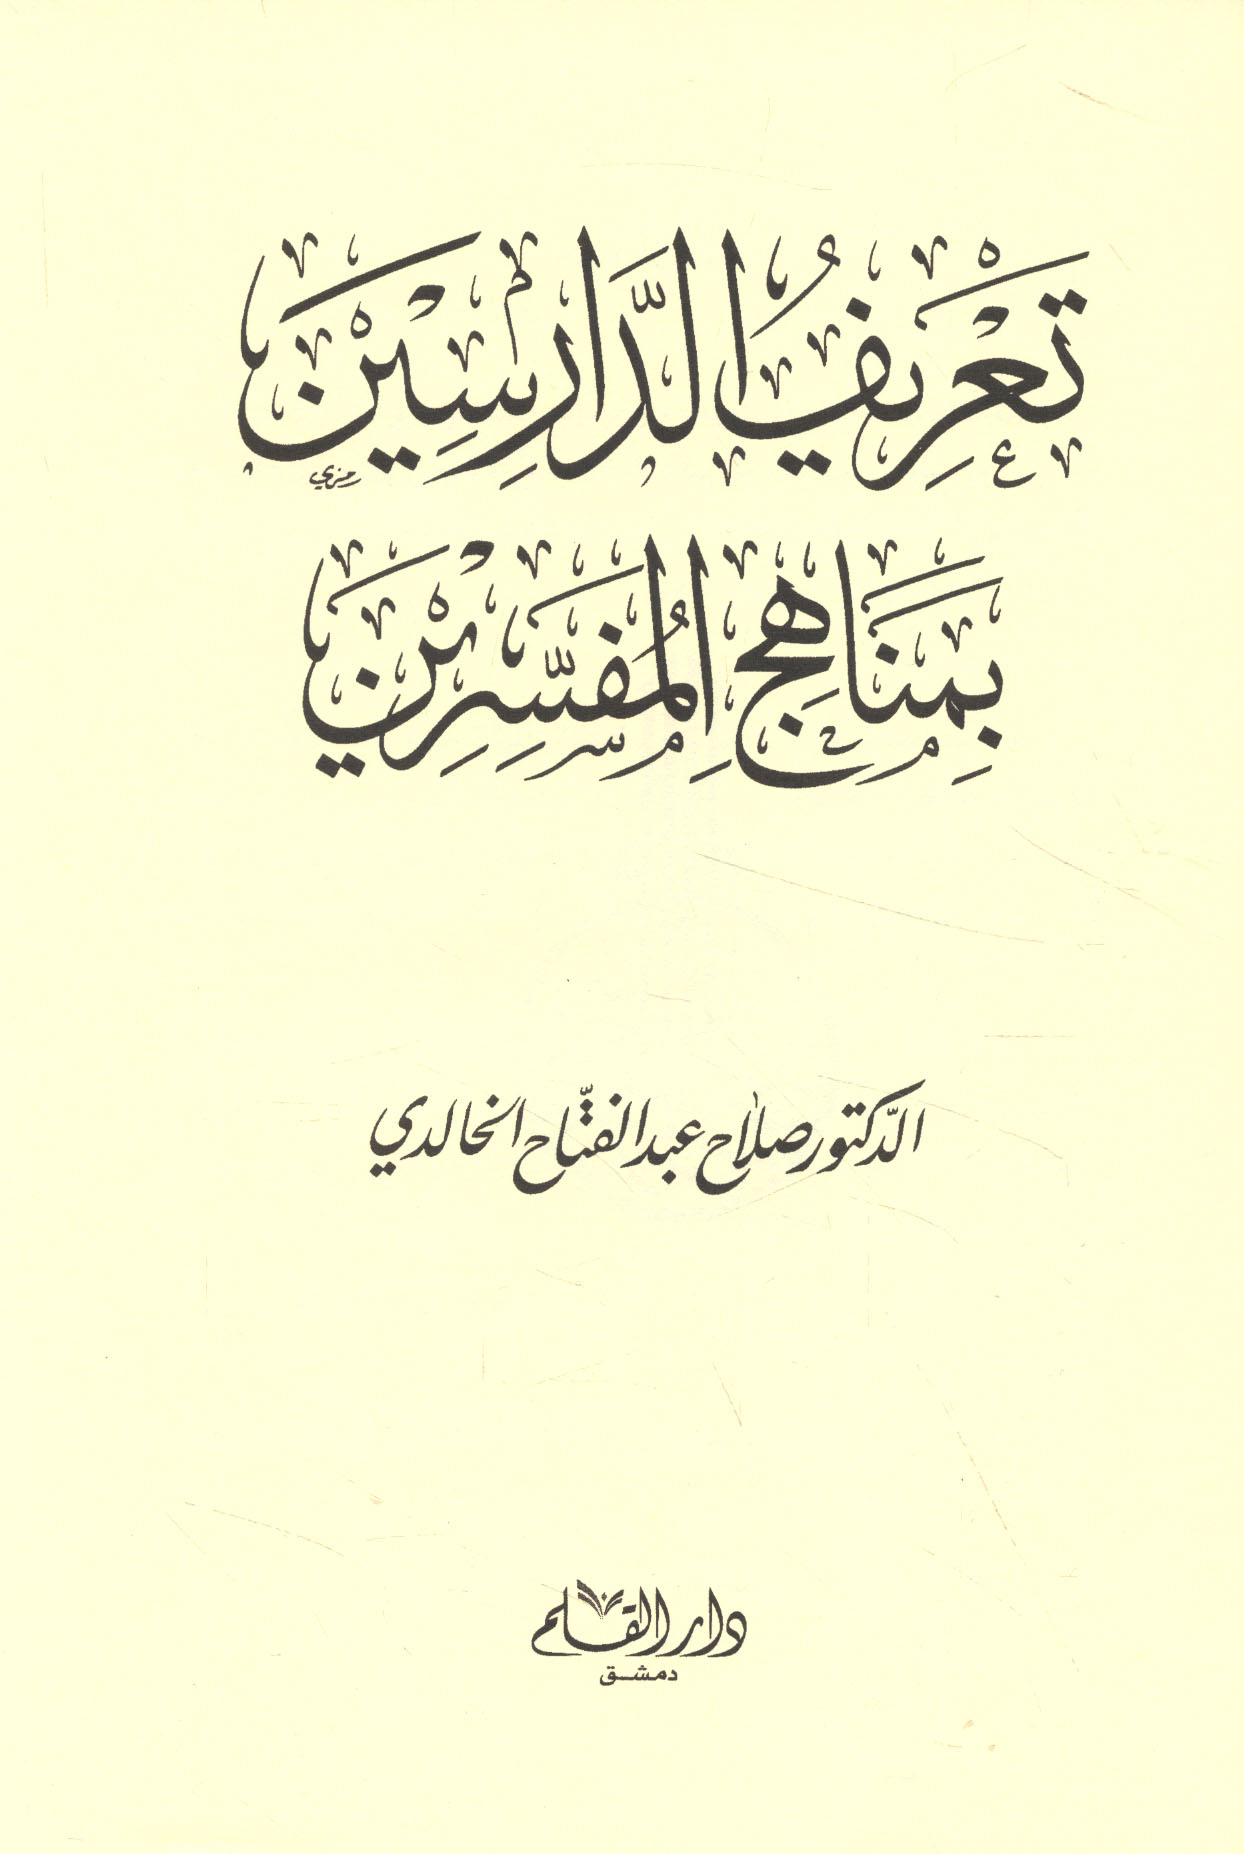 تَعْرِيفُ الدَّارِسِيْنَ
رمزي
بِمَنَاهِجِ المُفَسِّرِيْنَ
الدّكتور صلاح عبد الفتّاح الخالدي
دار القلم
دمشق